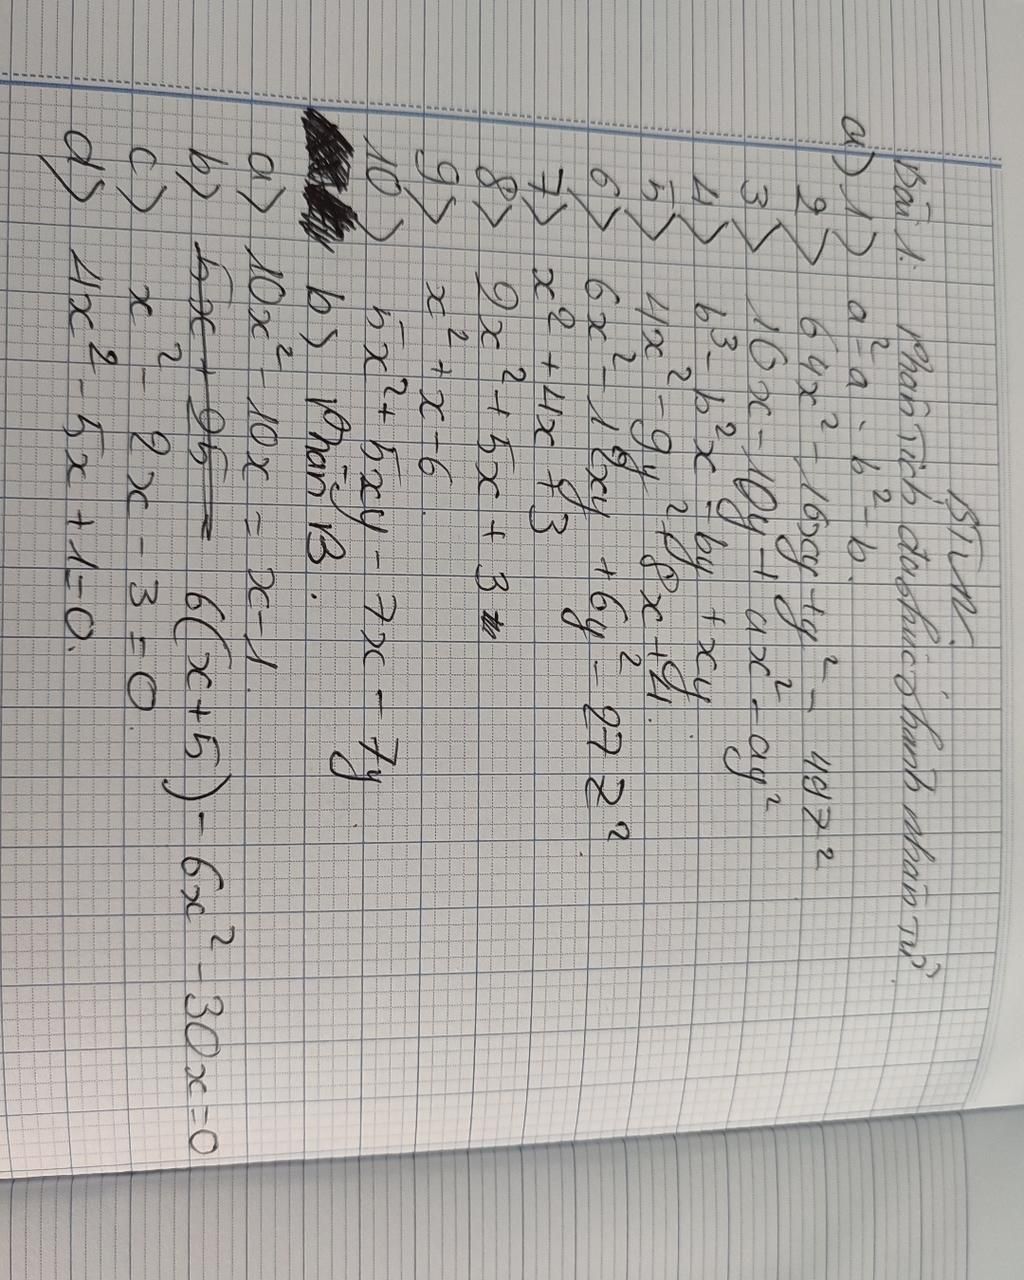 BTVN.
Bài 1: Phân tích đa thức thành nhân tử
a) 1) a² - a - b² - b.
2) 64x² - 16xy + y² - 49z²
3) 16x - 10y + ax² - ay²
4) b³ - b²x - by + xy
5) 4x² - 9y² + 8x + 4.
6) 6x² - 12xy + 6y² - 27z².
7) x² + 4x + 3
8) 2x² + 5x + 3
9) x² + x - 6
10) 5x² + 5xy - 7x - 7y.
b) Phần B.
a) 10x² - 10x = x - 1.
b) 6(x+5) - 6x² - 30x = 0
c) x² - 2x - 3 = 0.
d) 4x² - 5x + 1 = 0.